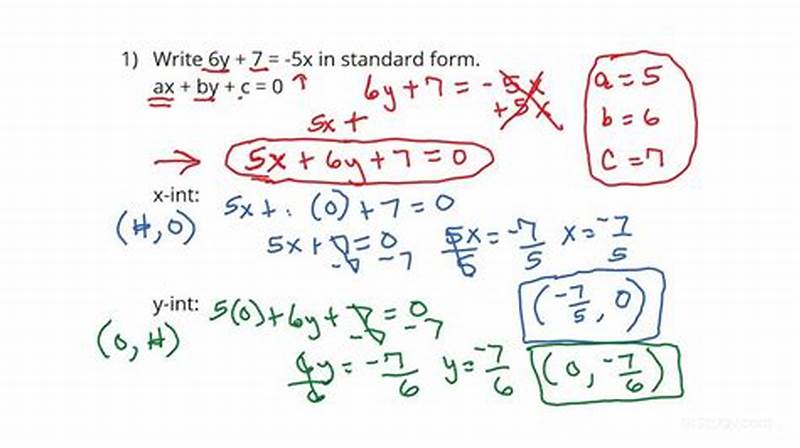 1) Write 6y + 7 = -5x in standard form.
ax + by + c = 0 ↑
6y + 7 = -5x
+5x
5x +
→ 5x + 6y + 7 = 0
a = 5
b = 6
c = 7
x-int:
(#, 0)
5x + . (0) + 7 = 0
5x + 7 = 0
-7 -7
5x/5 = -7/5 x = -7/5
(-7/5, 0)
y-int:
(0, #)
5(0) + 6y + 7 = 0
-7 -7
6y/6 = -7/6 y = -7/6
(0, -7/6)